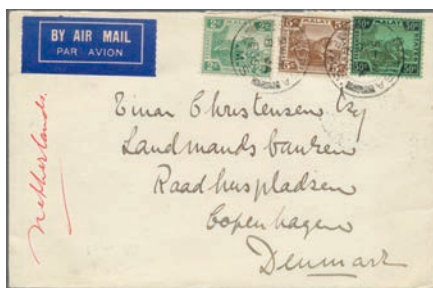 BY AIR MAIL
PAR AVION
MALAY MALAY MALAY
Netherlands.
Einar Christensen Esq
Landmandsbanken
Raadhuspladsen
Copenhagen
Denmark